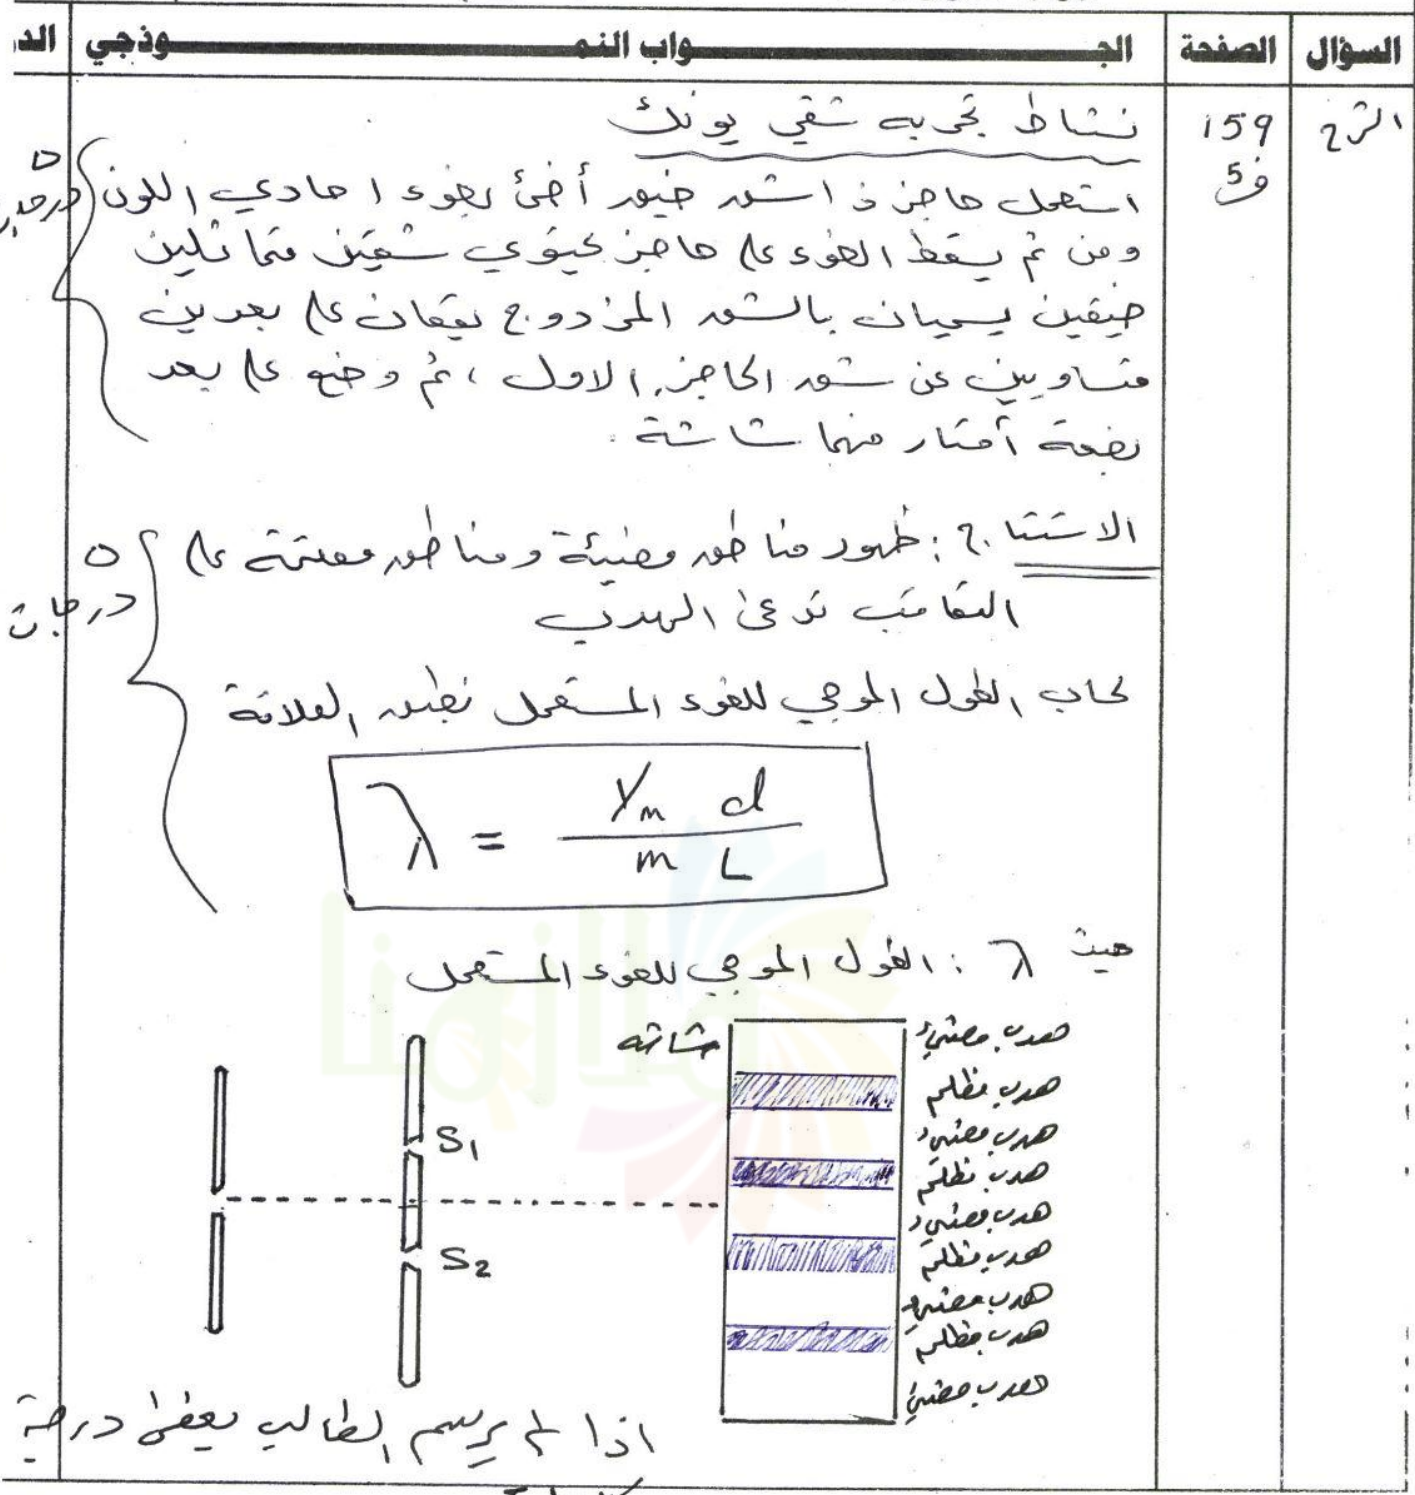 السؤال الصفحة الجـــواب النمـــوذجي الد
159
ف5
نشاط تجربه شقي يونك
استعمل حاجز ذا شق ضيق أضئ بضوء احادي اللون
ومن ثم يسقط الضوء على حاجز يحوي شقين متماثلين
ضيقين يسميان بالشق المزدوج يقعان على بعدين
متساويين عن شق الحاجز الاول ، ثم وضع على بعد
بضعة أمتار منهما شاشة .
٥
الاستنتاج : ظهور مناطق مضيئة ومناطق معتمة على
التعاقب تدعى الهدب
٥ درجات
لحساب الطول الموجي للضوء المستعمل نطبق العلاقة
λ = Ym d / m L
حيث λ : الطول الموجي للضوء المستعمل
شاشه
هدب مضيء
هدب مظلم
هدب مضيء
هدب مظلم
هدب مضيء
هدب مظلم
هدب مضيء
هدب مظلم
هدب مضيء
S1
S2
اذا لم يرسم الطالب يعطى درجة